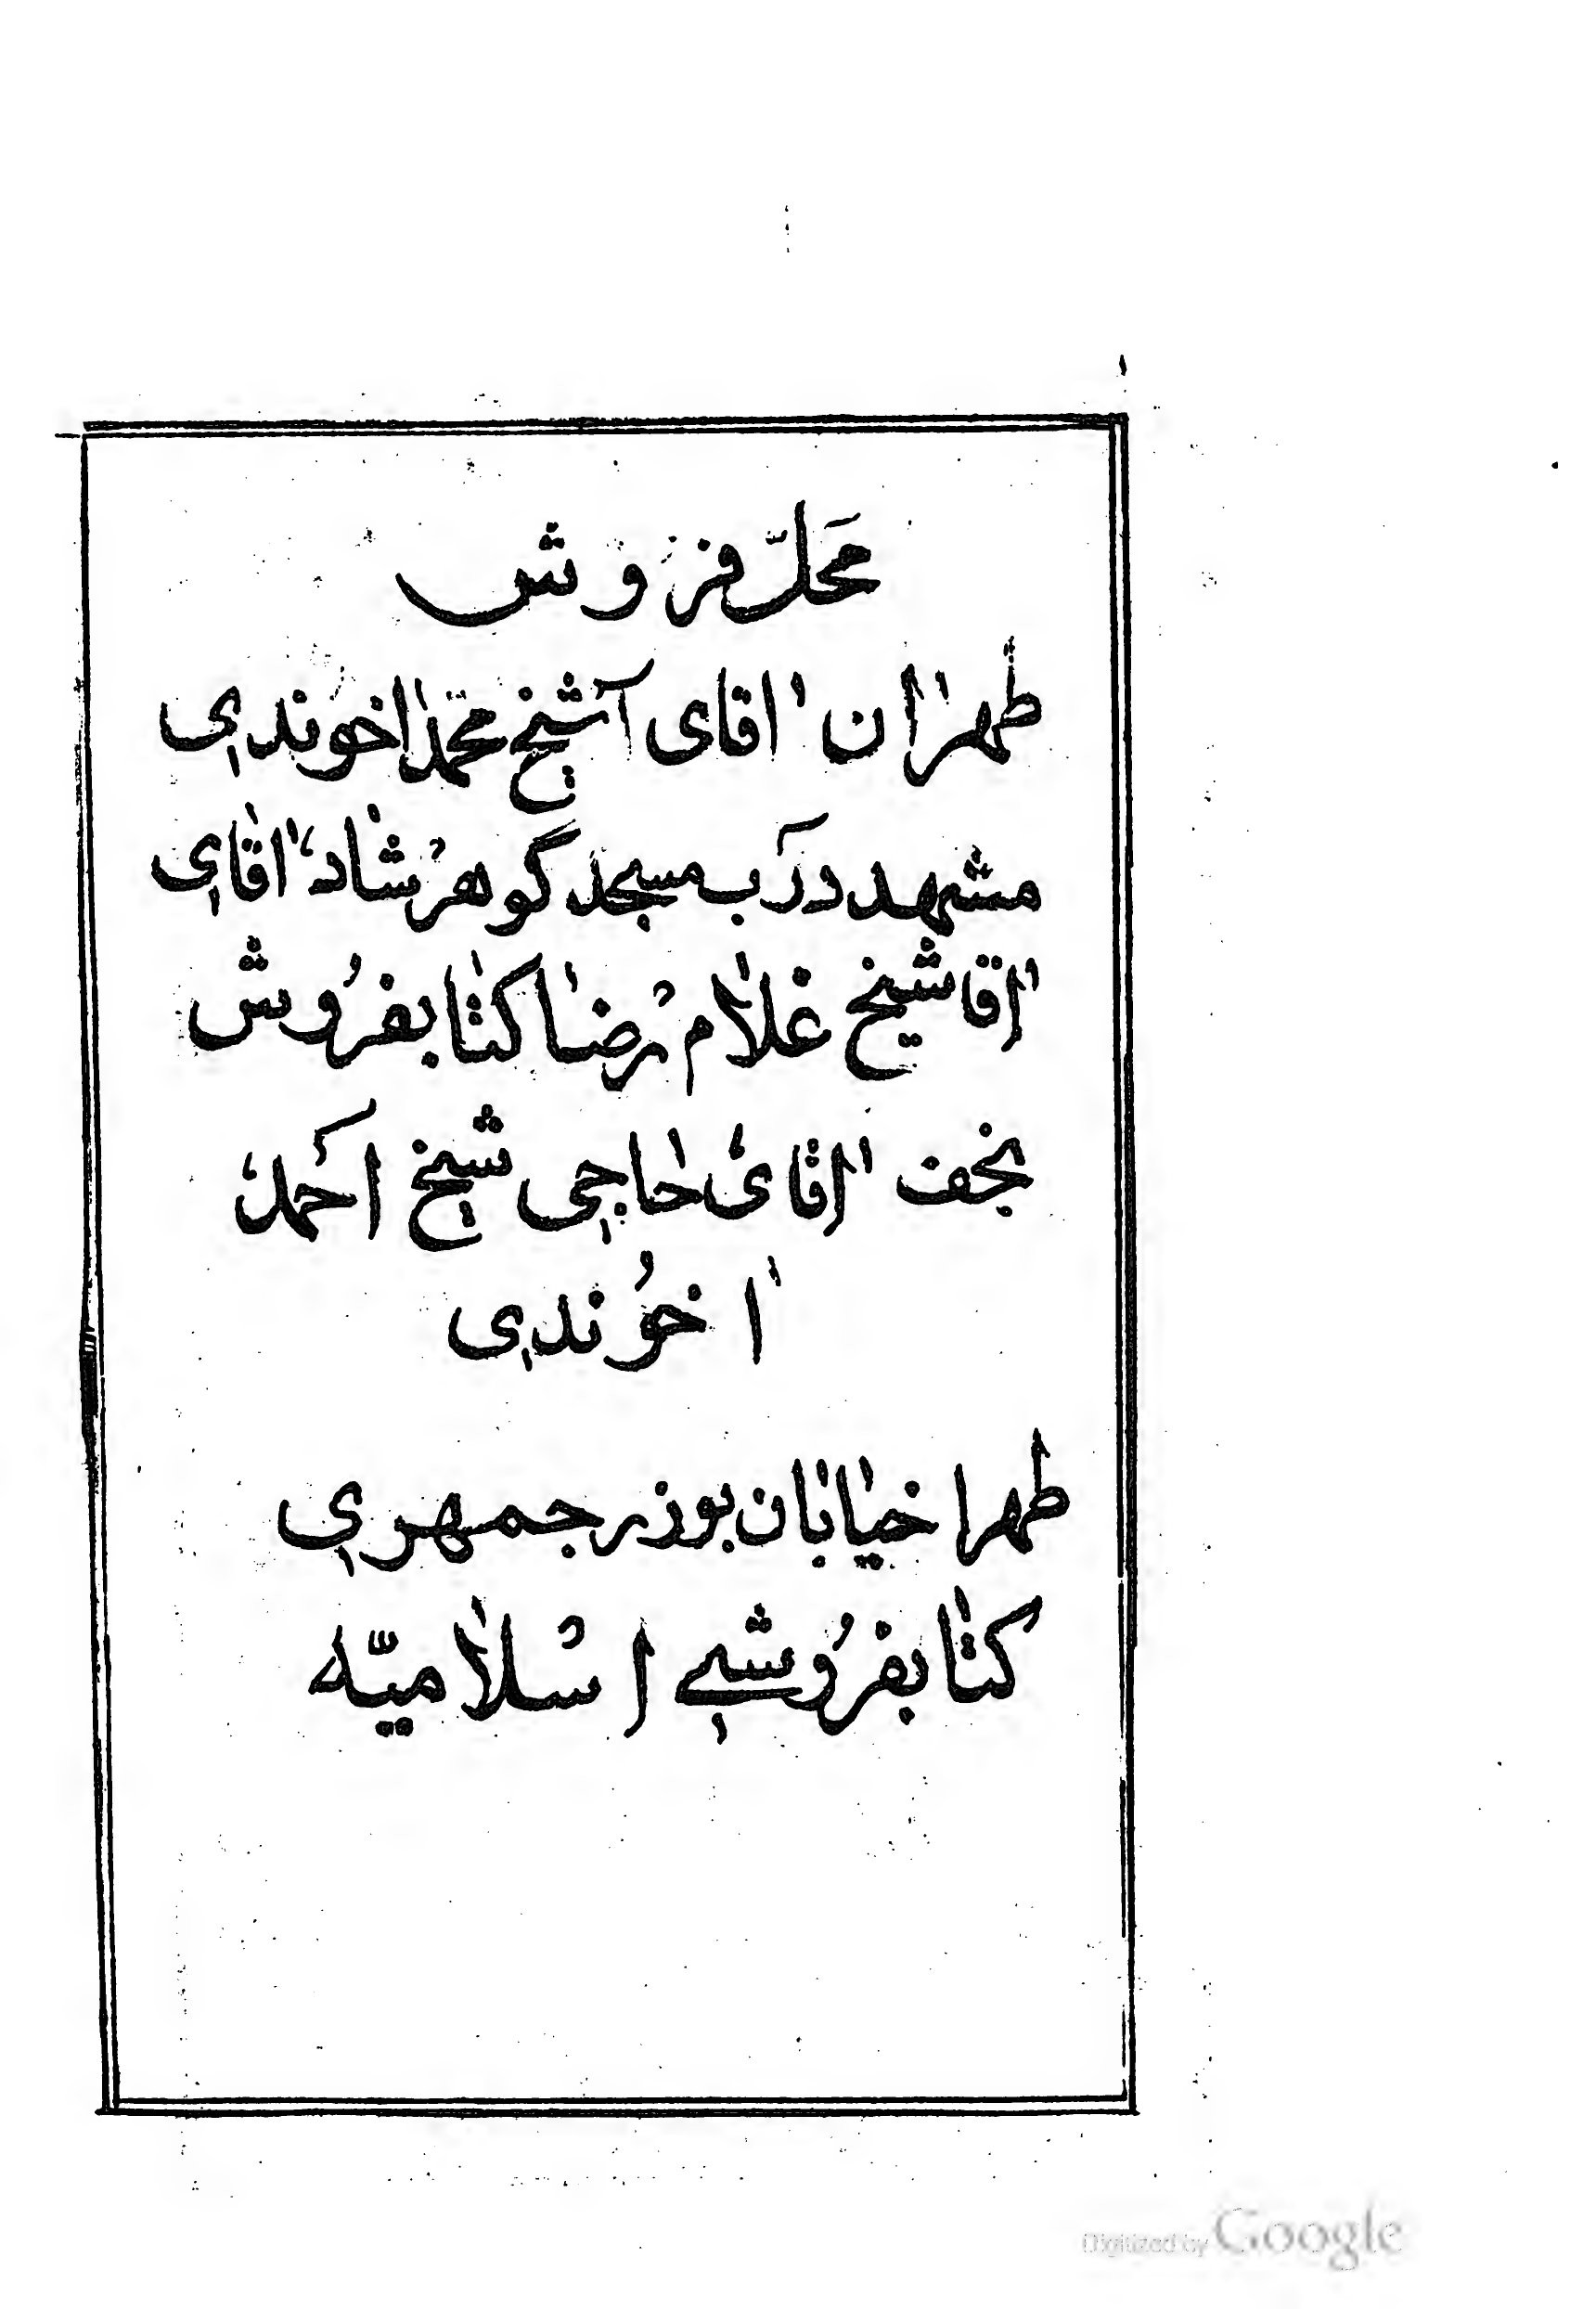 محلّ فروش
طهران اقای آشیخ محمّد اخوندی
مشهد درب مسجد گوهرشاد اقای
اقا شیخ غلام رضا کتابفروش
نجف اقای حاجی شیخ احمد
اخوندی
طهرا خیابان بوذرجمهری
کتابفروشی اسلامیّه
Digitized by Google